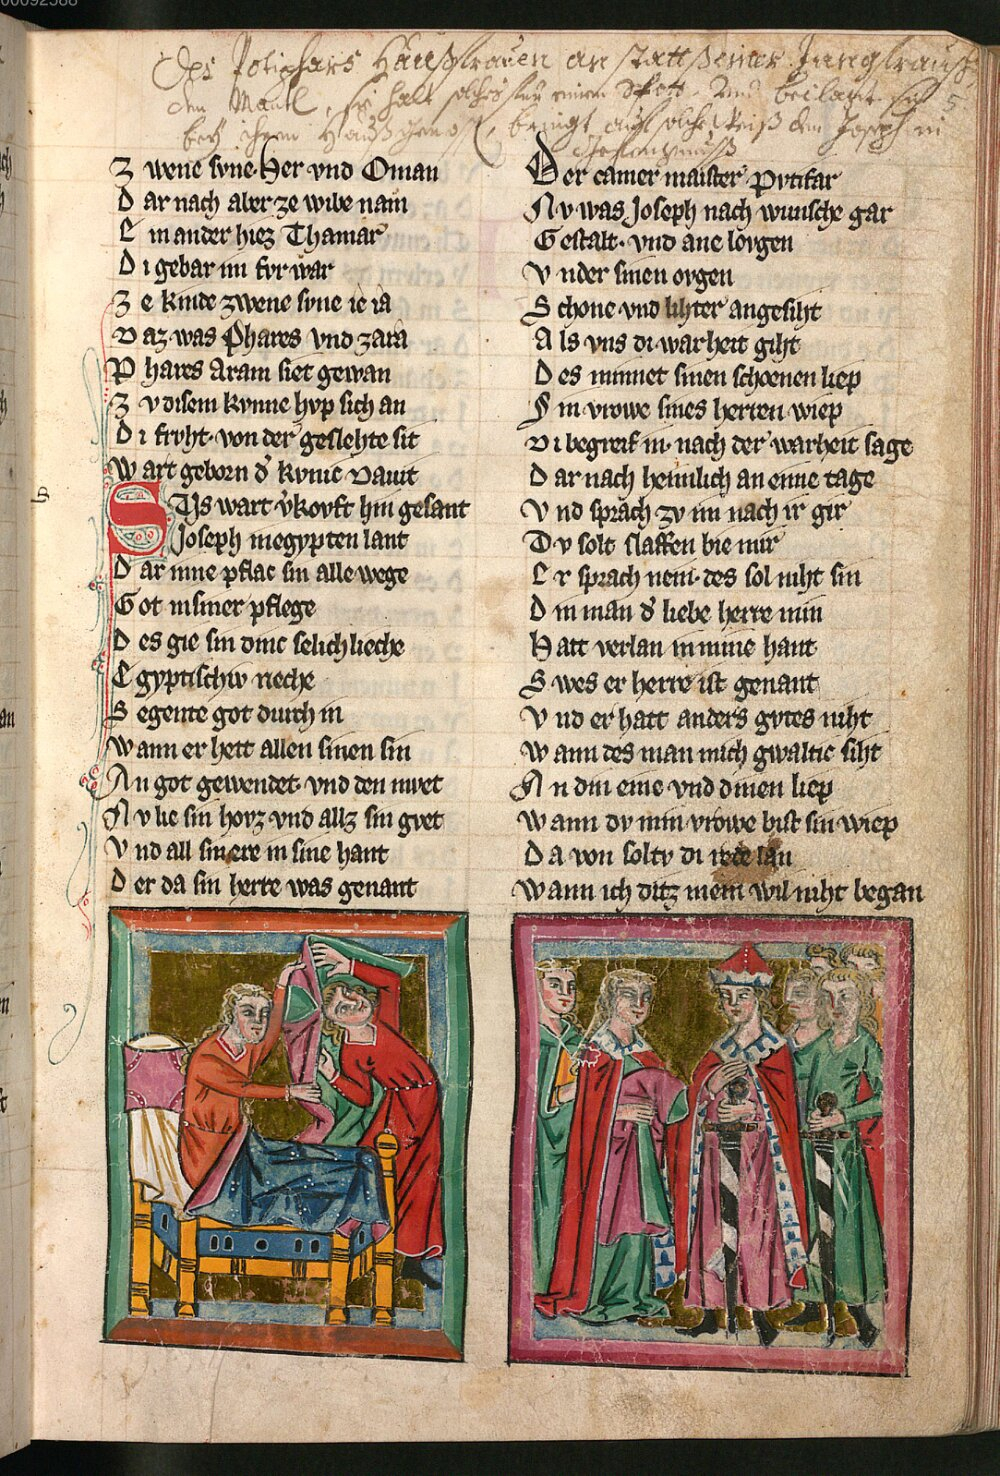 00092588
Des Potiphars Haußfrawen an statt seiner Jungfrauschafft
den Mantl, sie halt solches für einen Spott. Und beclagt sich
bey ihrem Haußgenoß, bringt auch solche weiß den Joseph in
Gefengnuß
5
Z wene svne· Her vnd Oman
D ar nach aber ze wibe nam
E in ander hiez Thamar
D i gebar im fvr war
Z e kinde zwene svne ie ia
D az was Phares vnd zara
P hares Aram siet gewan
Z v disem kvnne hvp sich an
D i frvht· von der geslehte sit
W art geborn d' kvnic Dauit
S Us wart v'kovft hin gesant
Joseph inegypten lant
D ar inne pflac sin alle wege
G ot insiner pflege
D es gie sin dinc selichlieche
E gyptischiv riche
S egente got durch in
W ann er hett allen sinen sin
A n got gewendet· vnd den mvet
N v lie sin horz vnd allz sin gvet
V nd all sin ere in sine hant
D er da sin herre was genant
D er camer maister Pvtifar
N v was Joseph nach wunsche gar
G estalt· vnd ane sorgen
V nder sinen orgen
S chone vnd lihter angesiht
A ls vns di warheit giht
D es minnet sinen schoenen liep
S in vrowe sines herren wiep
D i begreif in· nach der warheit sage
D ar nach heimlich an eime tage
V nd sprach zv im nach ir gir
D v solt slaffen bie mir
E r sprach nein· des sol niht sin
D in man d' liebe herre min
H att verlan in mine hant
S wes er herre ist genant
V nd er hatt anders gvtes niht
W ann des man mich gwaltic siht
A n din eine vnd dinen liep
W ann dv min vrowe bist sin wiep
D a von soltv di rede lan
W ann ich ditz mein wil niht began